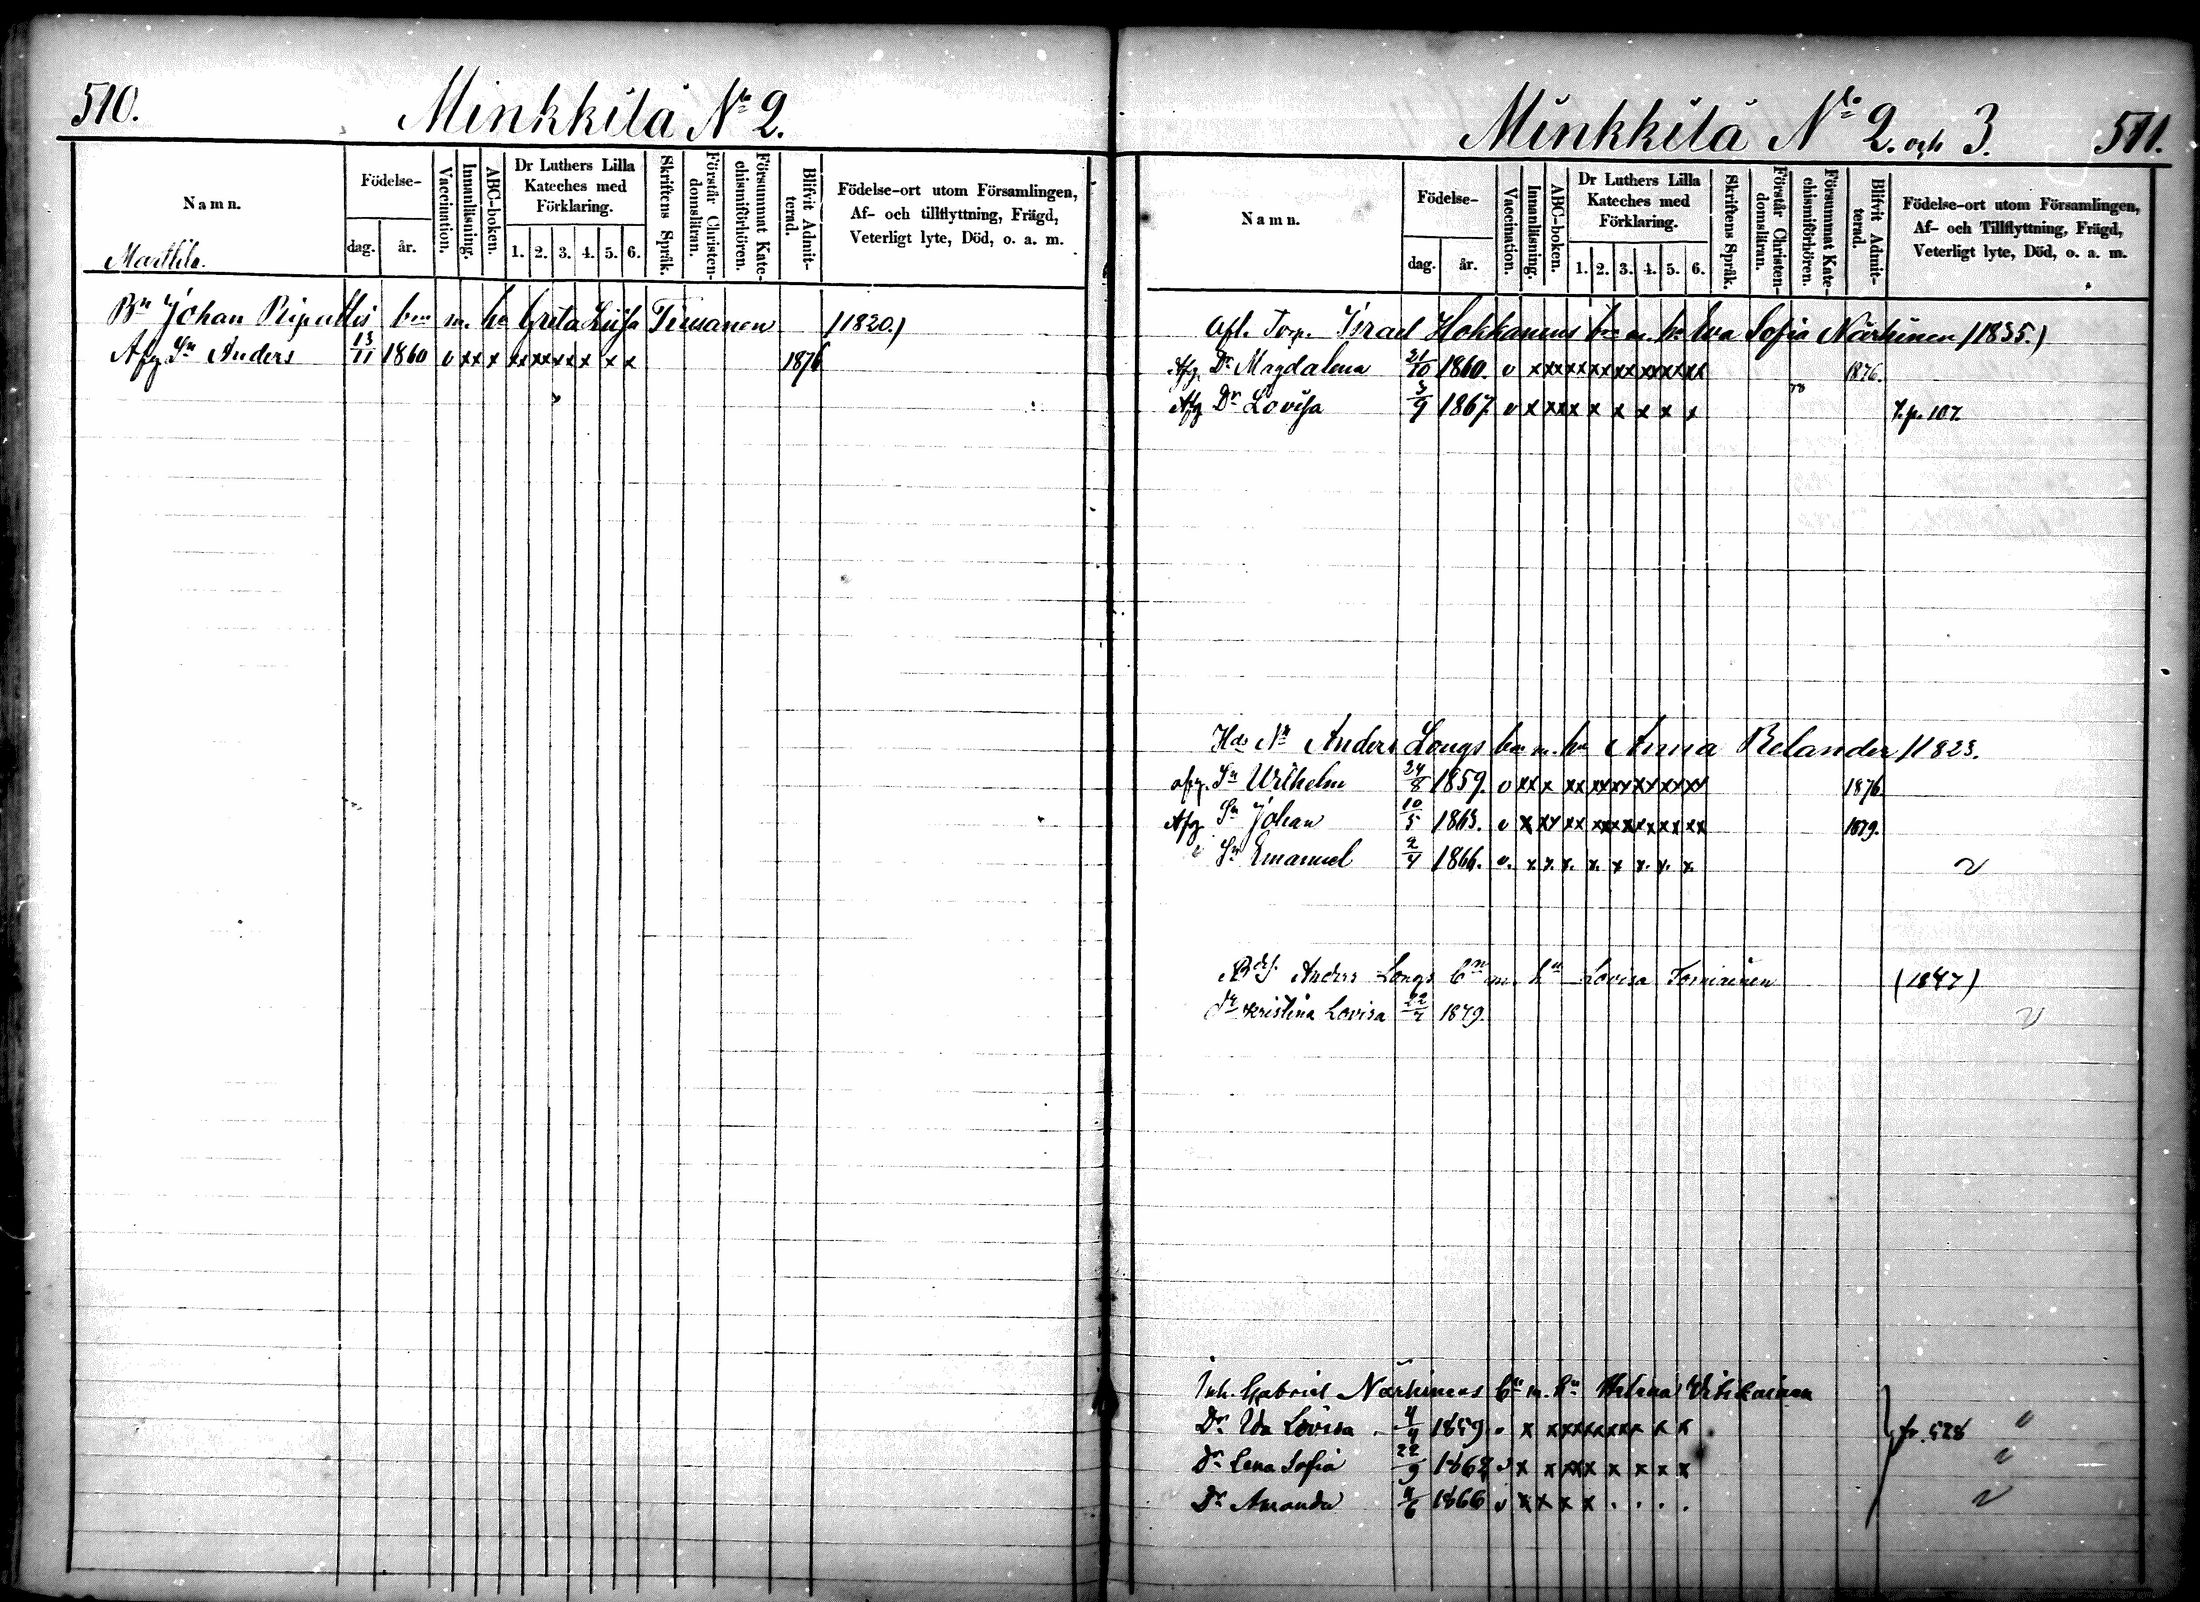 510. Minkkilä No 2.
Namn. Födelse- dag. år. Vaccination. Innanläsning. ABC-boken. Dr Luthers Lilla Kateches med Förklaring. 1. 2. 3. 4. 5. 6. Skriftens Språk. Förstår Christendomsläran. Försummat Katechismiförhören. Blifvit Admitterad. Födelse-ort utom Församlingen, Af- och tillflyttning, Frägd, Veterligt lyte, Död, o. a. m.
Marttila.
Bn Johan Ripattis bn m. hu Greta Liisa Timanen (1820.)
Afg Sn Anders 13/11 1860 v xx x xx xx xx x x x 1876
Minkkilä No 2. och 3. 511.
Namn. Födelse- dag. år. Vaccination. Innanläsning. ABC-boken. Dr Luthers Lilla Kateches med Förklaring. 1. 2. 3. 4. 5. 6. Skriftens Språk. Förstår Christendomsläran. Försummat Katechismiförhören. Blifvit Admitterad. Födelse-ort utom Församlingen, Af- och Tillflyttning, Frägd, Veterligt lyte, Död, o. a. m.
Afl. Torp. Israel Hokkanens bn m. hu Eva Sofia Närhinen (1835.)
Afg. Dr Magdalena 21/10 1860. v x xx xx xx xx xx xx xx 1876.
Afg Dr Lovisa 3/9 1867 v x xx x x x x x x 78 f.p. 107.
Anders Longs bn m. hu Anna Relander (1823.
afg. Sn Wilhelm 24/8 1859. v xx x xx xx xx xx xx xx 1876.
Afg Sn Johan 10/5 1863. v x xx xx xx xx xx xx xx 1879.
Sn Emanuel 2/4 1866. v. x x. x. x. x x. x. x
Anders Longs bn m. hu Lovisa Torniainen (1847)
dr Kristina Lovisa 22/7 1879.
Inh. Gabriel Närhinens bn m. hu Helena
Dr Ida Lovisa 4/4 1859 v x x xx xx xx x x x fr. 528
Dr Lena Sofia 22/9 1862 v x x xx x x x x x
Dr Amanda 4/6 1866 v x x x x . . . .